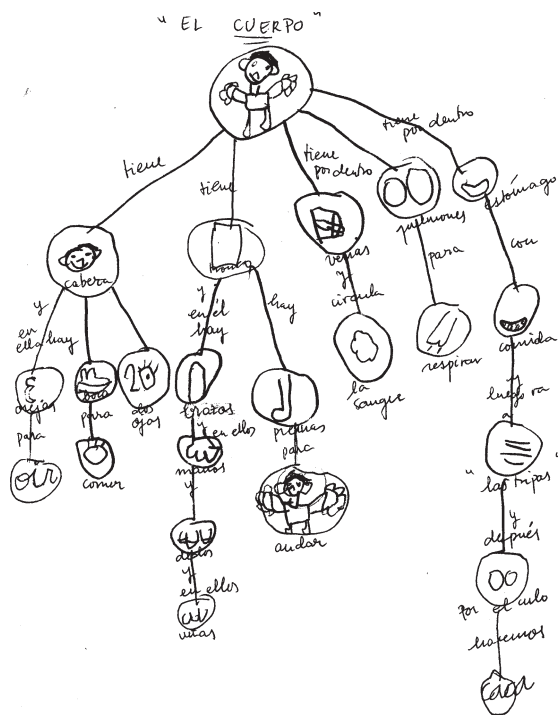 " EL CUERPO "
tiene
cabeza
y
en
ella hay
orejas
para
oir
boca
para
comer
20
dos
ojos
tiene
tronco
y
en él
hay
brazos
y en ellos
manos
y
dedos
y
en ellos
uñas
hay
piernas
para
andar
tiene
por dentro
venas
y
circula
la
sangre
pulmones
para
respirar
tiene
por dentro
estómago
con
comida
y
luego va
a
"las tripas"
y
después
por el culo
hacemos
caca